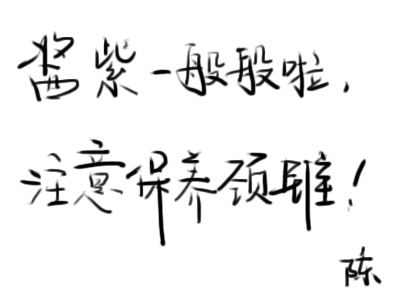 酱紫一般般啦,
注意保养颈椎!
陈